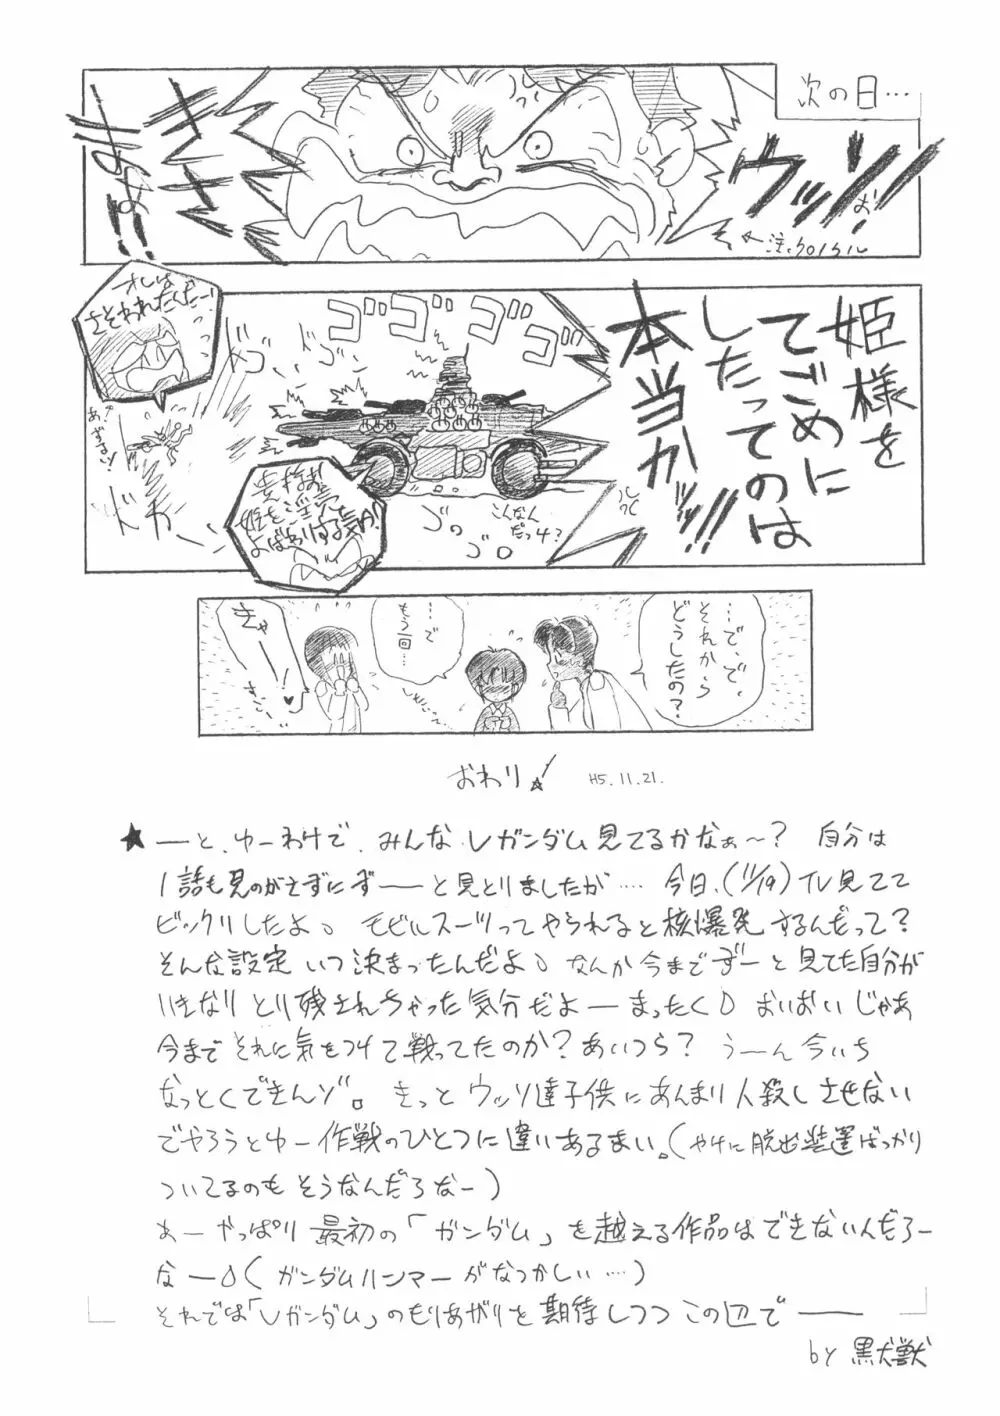 次の日…
ウッソ
ぉ
きさまぁ!!
↖注、クロノクル
姫様を
てごめに
したってのは
本当かッ!!
オレは
さそわれたんだー!
ゴゴゴゴ
ドゴ
ゴロ
ゴロ
こんなん
だっけ?
ドカ
貴様ぁ
姫を淫売
よばわりする気か!
…で、で、
それから
どうしたの?
…で
もう一回…
きゃーー!
おわり!
H5.11.21.
★ ーと、ゆーわけで、みんなVガンダム見てるかなぁ~? 自分は
1話も見のがさずにずーーと見とりましたが…. 今日、(11/19) TV見てて
ビックリしたよ。 モビルスーツってやられると核爆発するんだって?
そんな設定 いつ決まったんだよ。なんか今までずーと見てた自分が
いきなりとり残されちゃった気分だよーまったく。 おいおいじゃあ
今までそれに気をつけて戦ってたのか?あいつら? うーん今いち
なっとくできんゾ。 きっとウッソ達子供にあんまり人殺しさせない
でやろうとゆー作戦のひとつに違いあるまい。(やけに脱出装置ばっかり
ついてるのもそうなんだろなー)
あーやっぱり最初の「ガンダム」を越える作品はできないんだろー
なー。(ガンダムハンマーがなつかしい…)
それでは「Vガンダム」のもりあがりを期待しつつこの辺でーー
by 黒犬獣